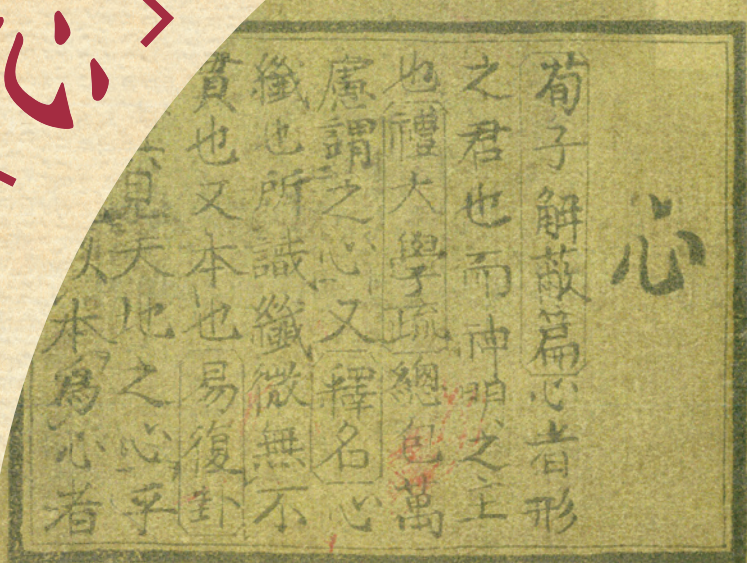 「心」
心
荀子解蔽篇心者形
之君也而神明之主
也禮大學疏總包萬
慮謂之心又釋名心
纖也所識纖微無不
貫也又本也易復卦
其見天地之心乎
以本爲心者